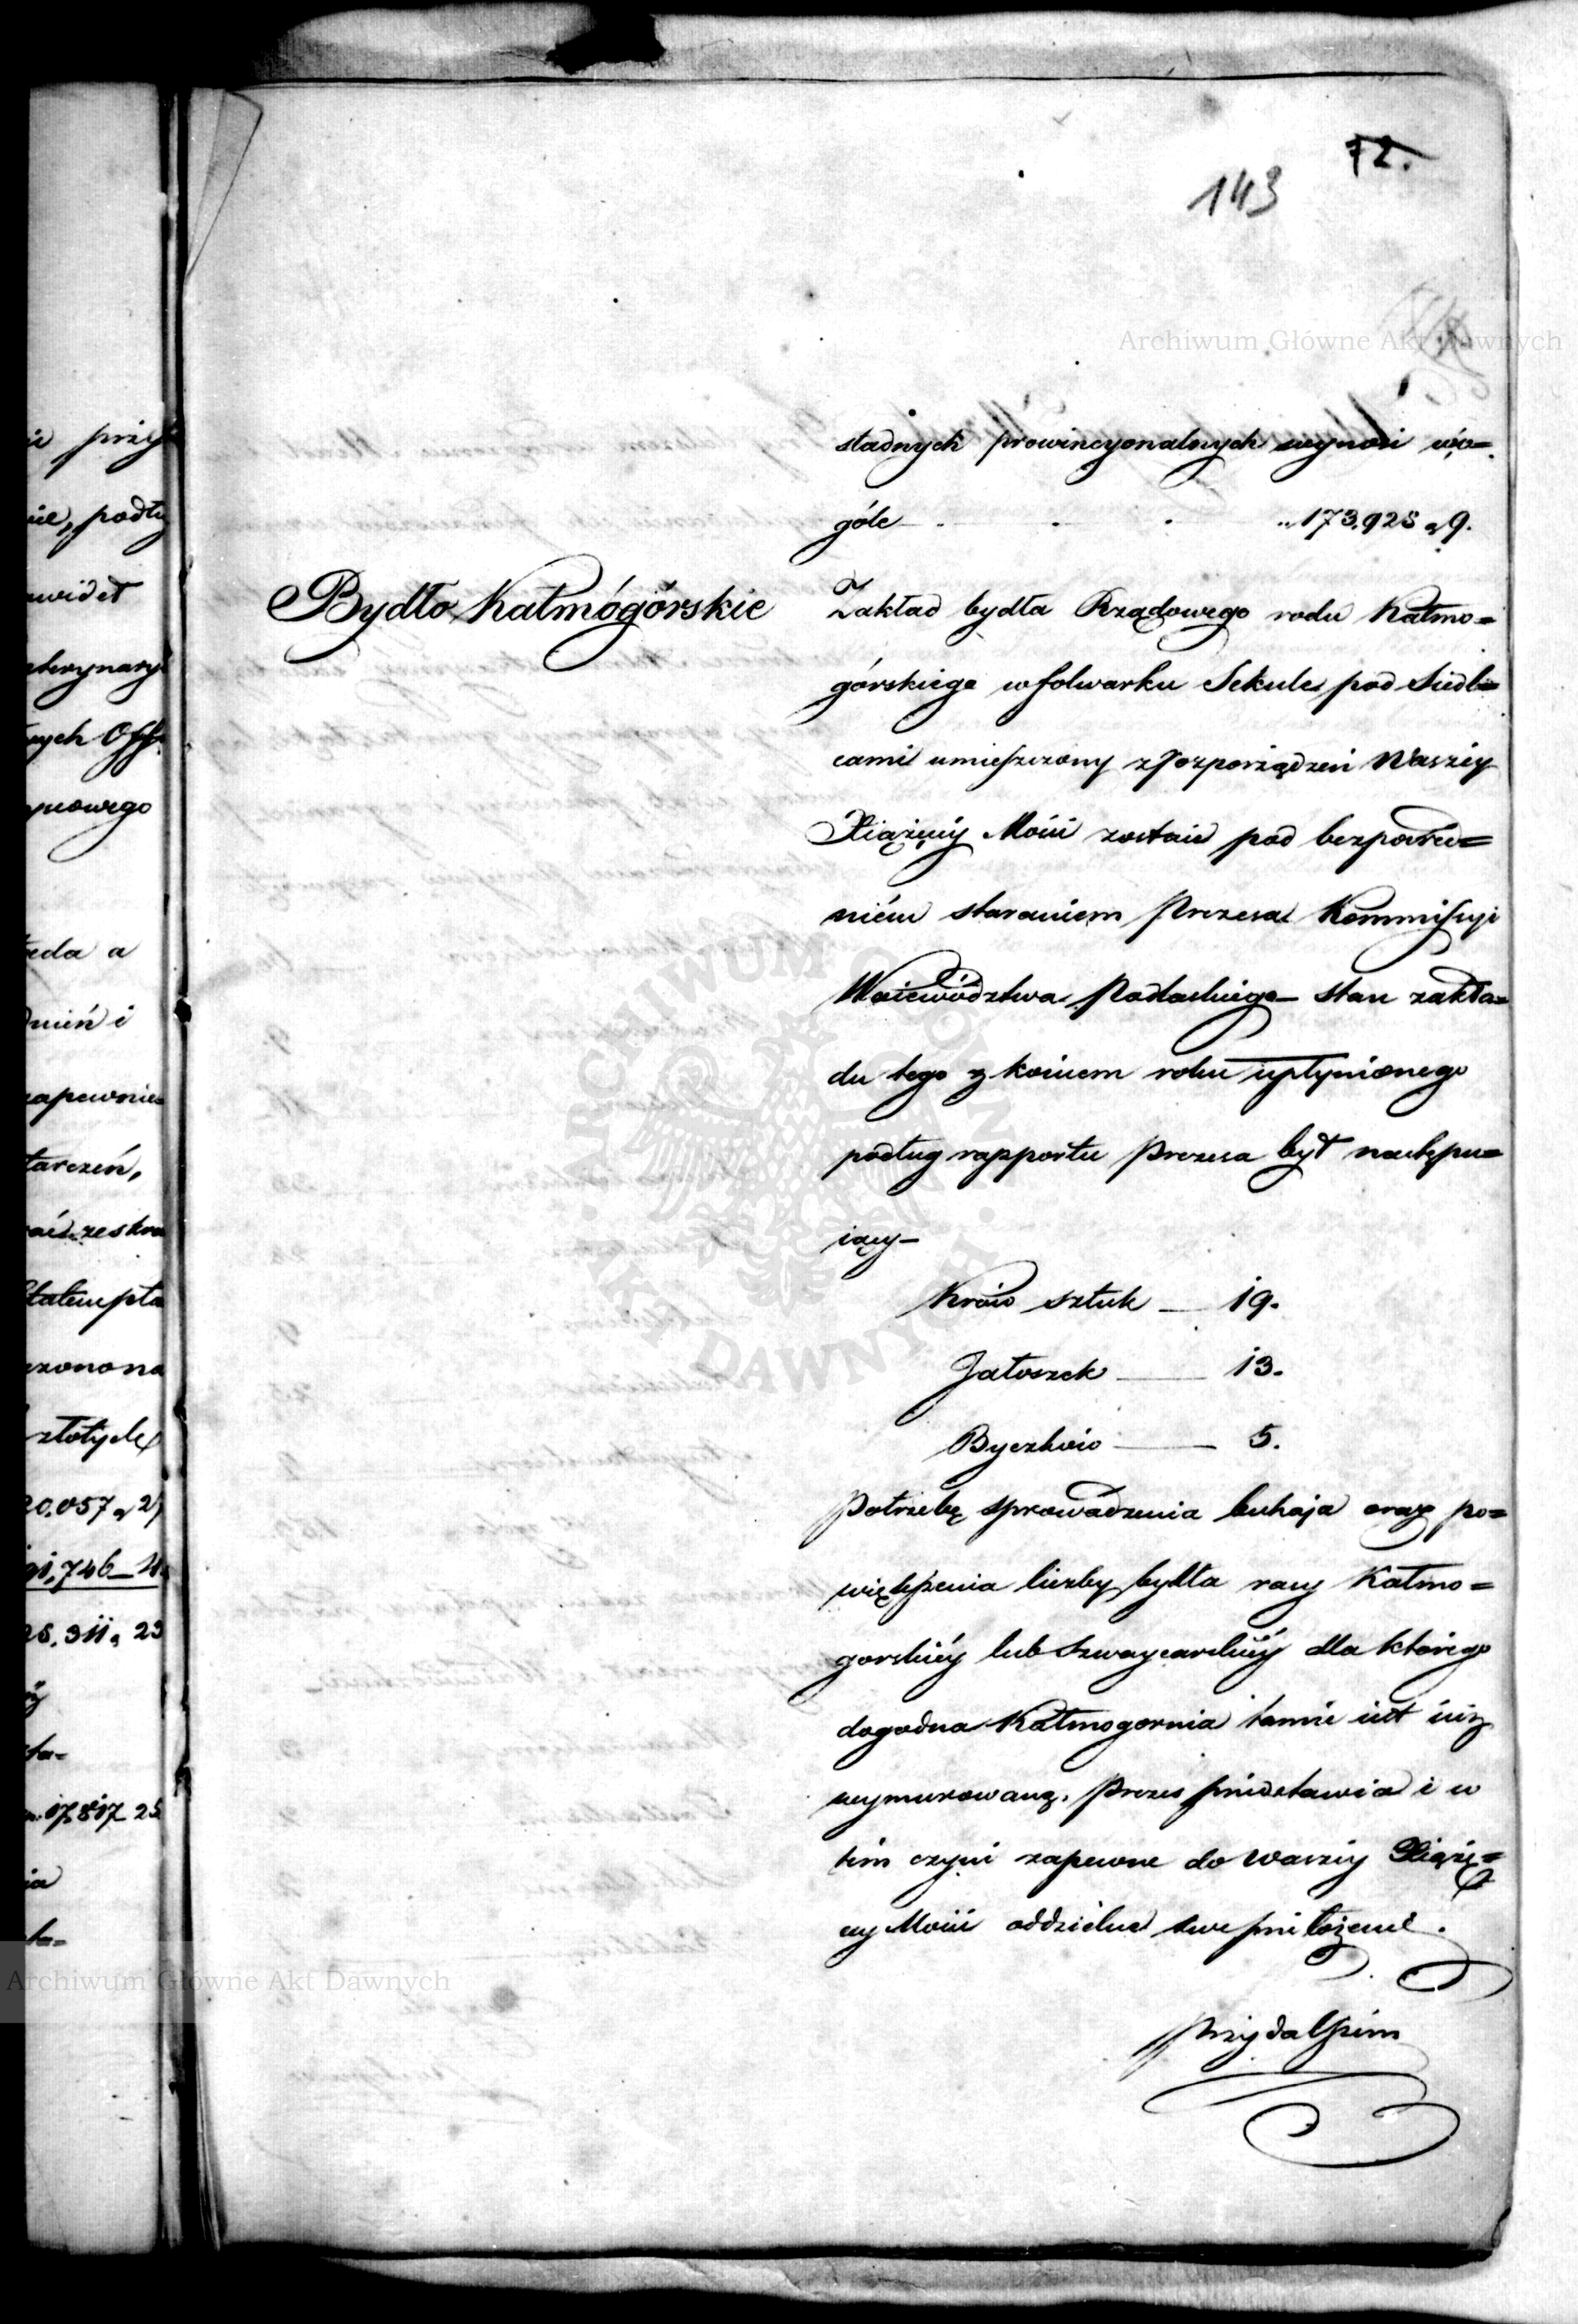 72.
143
Archiwum Główne Akt Dawnych
stadnych prowincyonalnych wynosi wo=
góle . . . „ 173.928 „ 9.
Bydło Kałmógórskie
Zakład bydła Rządowego rodu Kałmo=
górskiego w folwarku Sekule pod Siedl=
cami umieszczony z rozporządzeń Waszéy
Xiążęcéy Mości zostaie pod bezpośred=
niém staraniem Prezesa Kommissyi
Woiewództwa Podlaskiego – stan zakła=
du tego z końcem roku upłynionego
podług rapportu Prezesa był następu=
iący –
Krów sztuk — 19.
Jałoszek — 13.
Byczków — 5.
Potrzebę sprowadzenia buhaja oraz po=
większenia liczby bydła rasy Kałmo=
gorskiéy lub Szwaycarskiéy dla którego
dogodna Kałmogornia tamże iest iuż
wymurowaną, Prezes przedstawia i w
tém czyni zapewne do Waszéy Xiążę=
cy Mości oddzielne swe przełożenie.
ARCHIWUM GŁÓWNE · AKT DAWNYCH ·
Archiwum Główne Akt Dawnych
ie, podłu
nych Off
eda a
dnień i
zapewnie=
tarczeń,
złotych
20.057 „ 2
746 — 4
25.311 „ 23
17,817 25